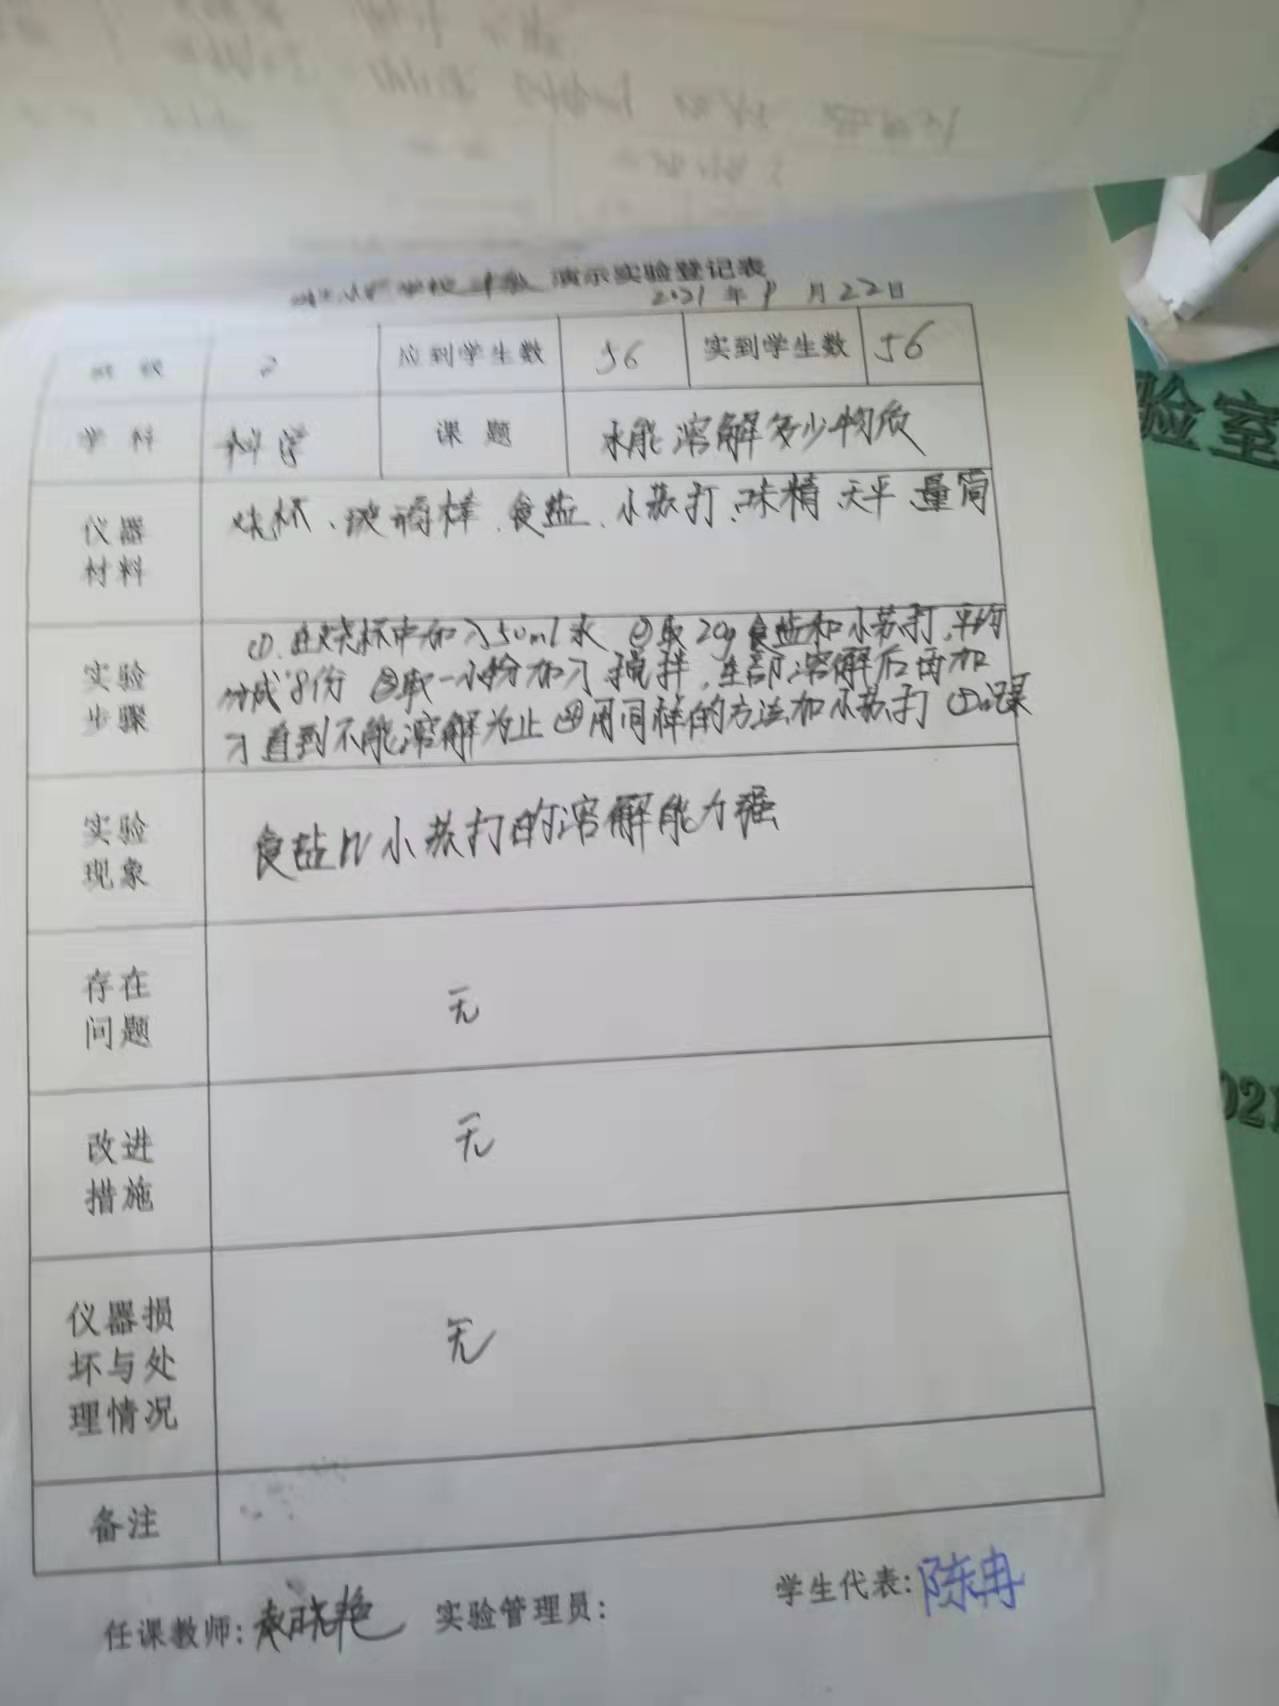 演示实验登记表
2021年9月22日
班级 2 应到学生数 56 实到学生数 56
学科 科学 课题 水能溶解多少物质
仪器材料 烧杯、玻璃棒、食盐、小苏打、味精、天平、量筒
实验步骤 ①.在烧杯中加入50ml水 ②取20g食盐和小苏打,平均
分成8份 ③取一小份加入搅拌,全部溶解后再加
入直到不能溶解为止 ④用同样的方法加小苏打 ⑤记录
实验现象 食盐比小苏打的溶解能力强
存在问题 无
改进措施 无
仪器损坏与处理情况 无
备注
任课教师: 晓艳 实验管理员: 学生代表:陈冉
验室
021